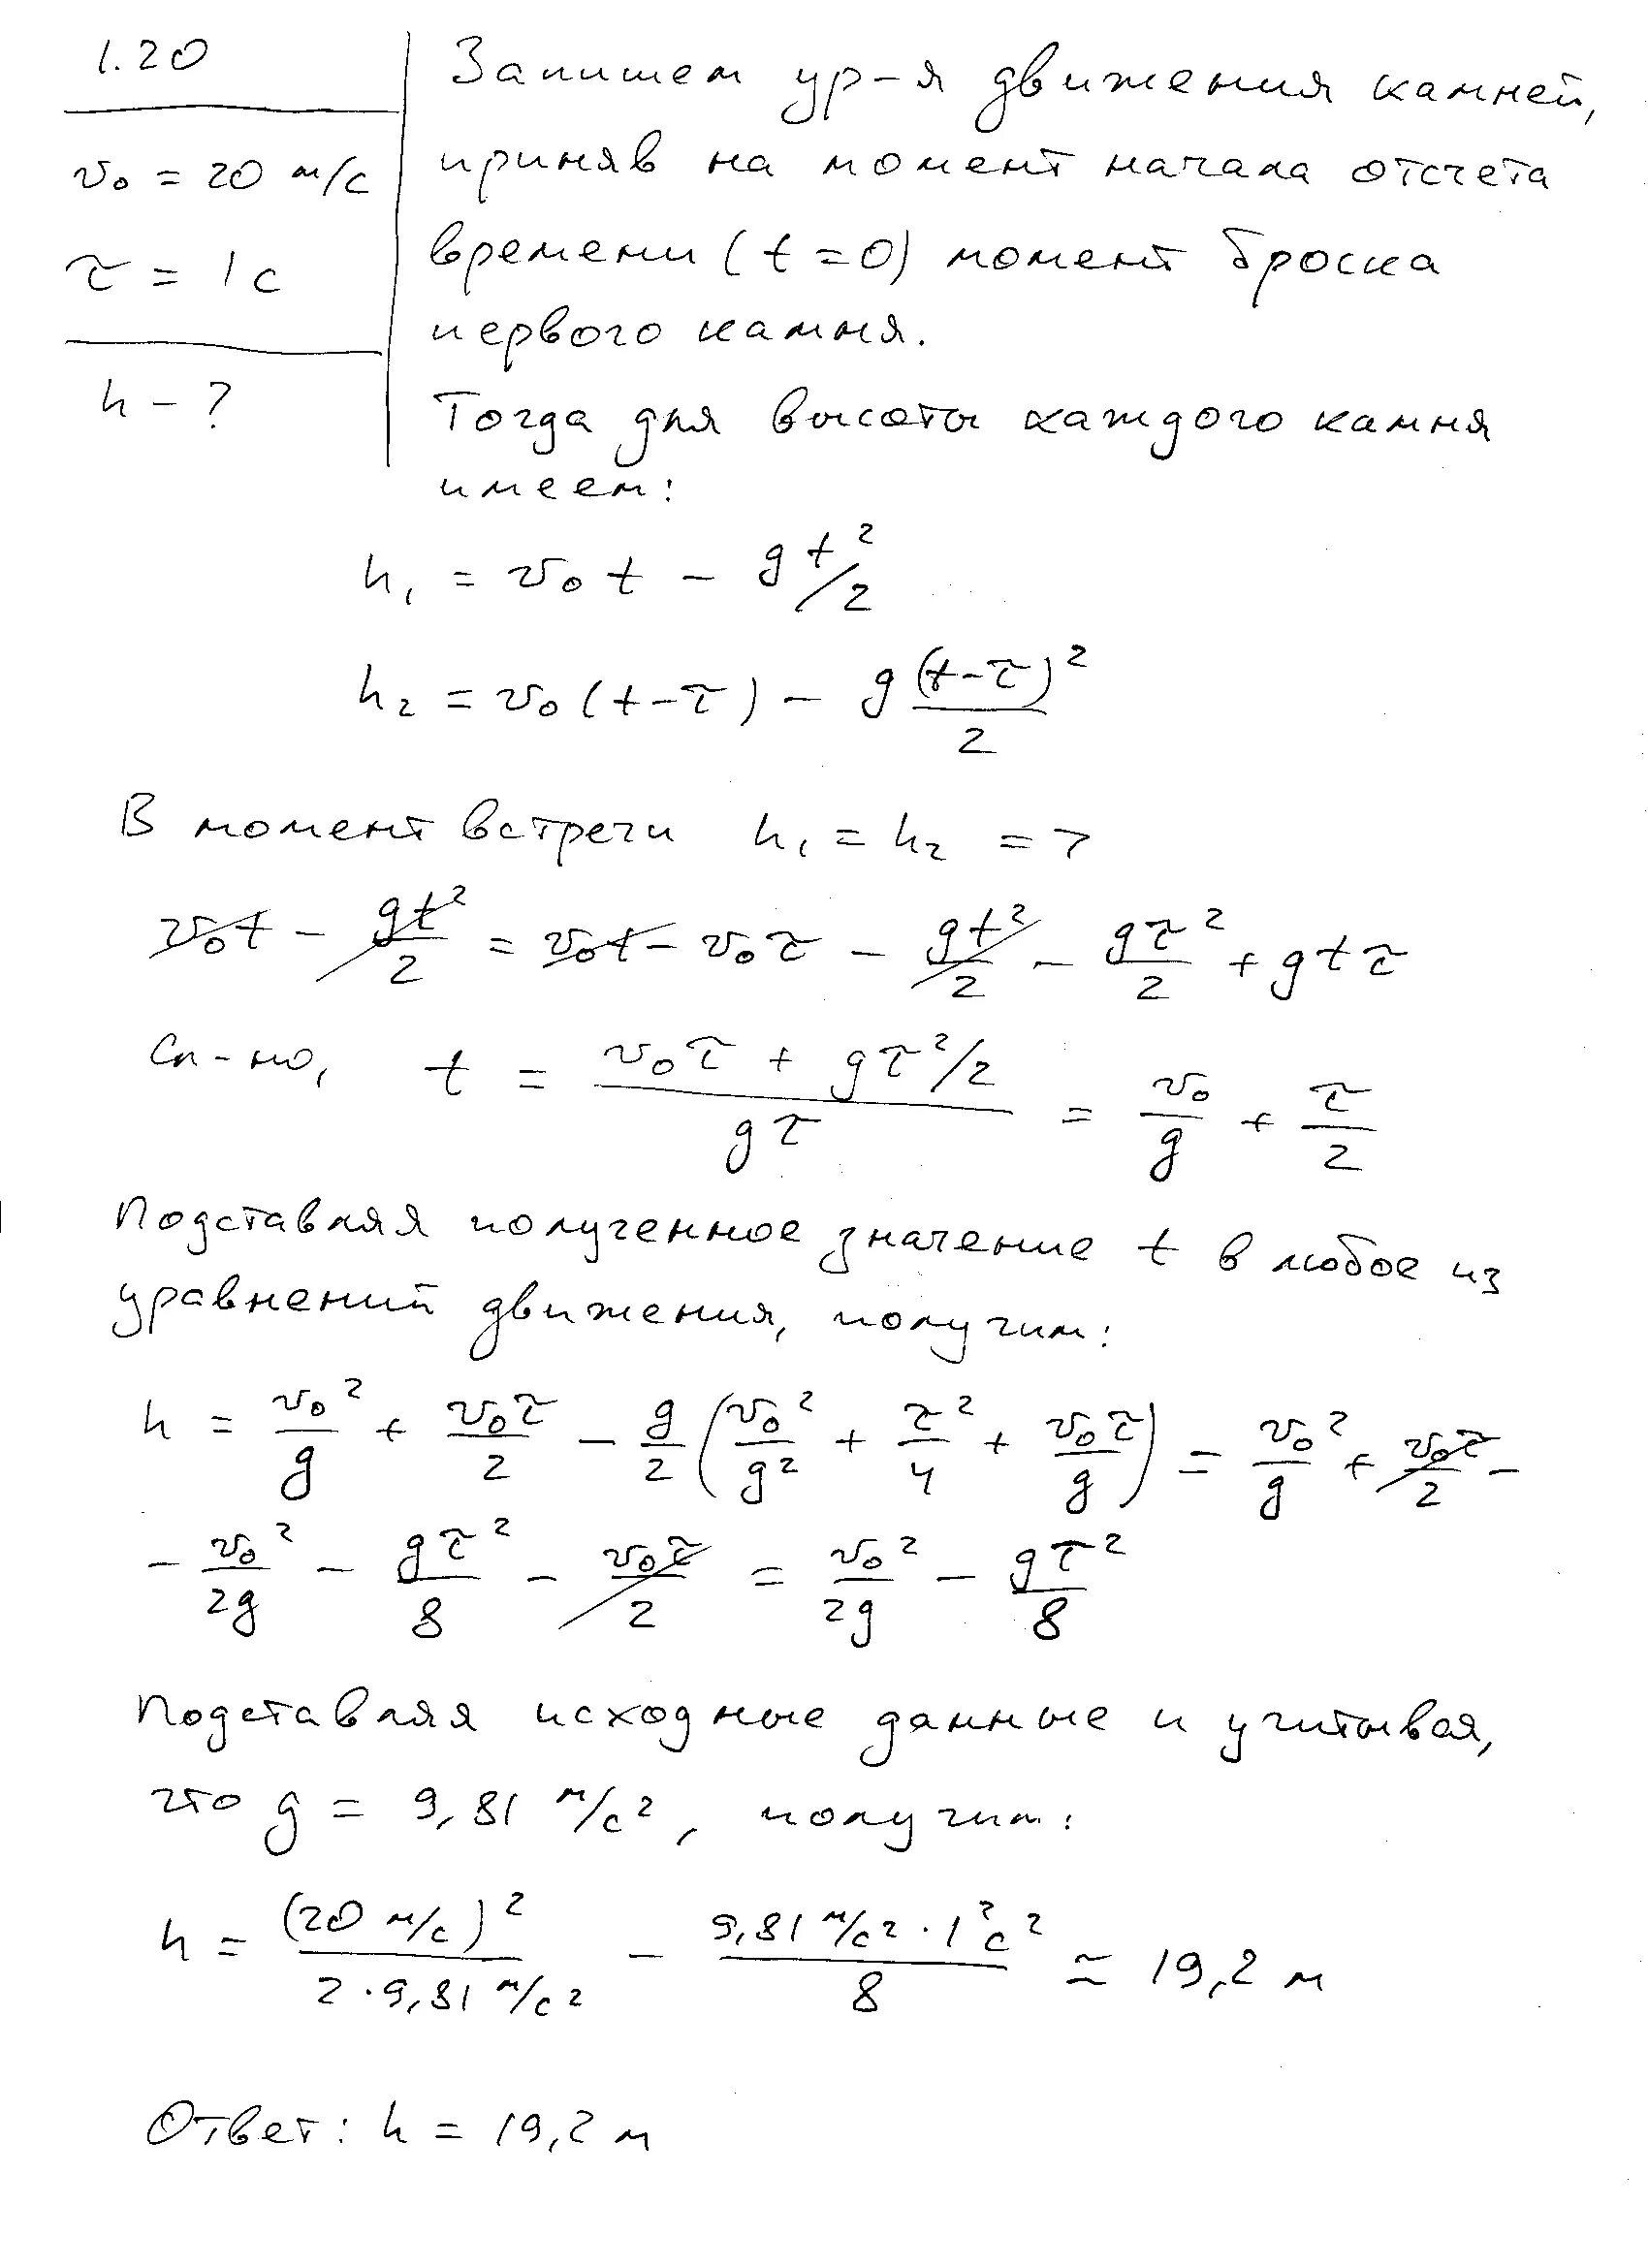 1.20
v₀ = 20 м/с
τ = 1 с
h - ?
Запишем ур-я движения камней,
приняв на момент начала отсчета
времени (t = 0) момент броска
первого камня.
Тогда для высоты каждого камня
имеем:
h₁ = v₀ t - g t²/2
h₂ = v₀ (t - τ) - g (t - τ)²/2
В момент встречи h₁ = h₂ =>
v₀t - gt²/2 = v₀t - v₀τ - gt²/2 - gτ²/2 + gtτ
Сл-но, t = (v₀τ + gτ²/2)/(gτ) = v₀/g + τ/2
Подставляя полученное значение t в любое из
уравнений движения, получим:
h = v₀²/g + v₀τ/2 - g/2 (v₀²/g² + τ²/4 + v₀τ/g) = v₀²/g + v₀τ/2 -
- v₀²/2g - gτ²/8 - v₀τ/2 = v₀²/2g - gτ²/8
Подставляя исходные данные и учитывая,
что g = 9,81 м/с², получим:
h = (20 м/с)²/(2·9,81 м/с²) - (9,81 м/с² · 1² с²)/8 ≃ 19,2 м
Ответ: h = 19,2 м